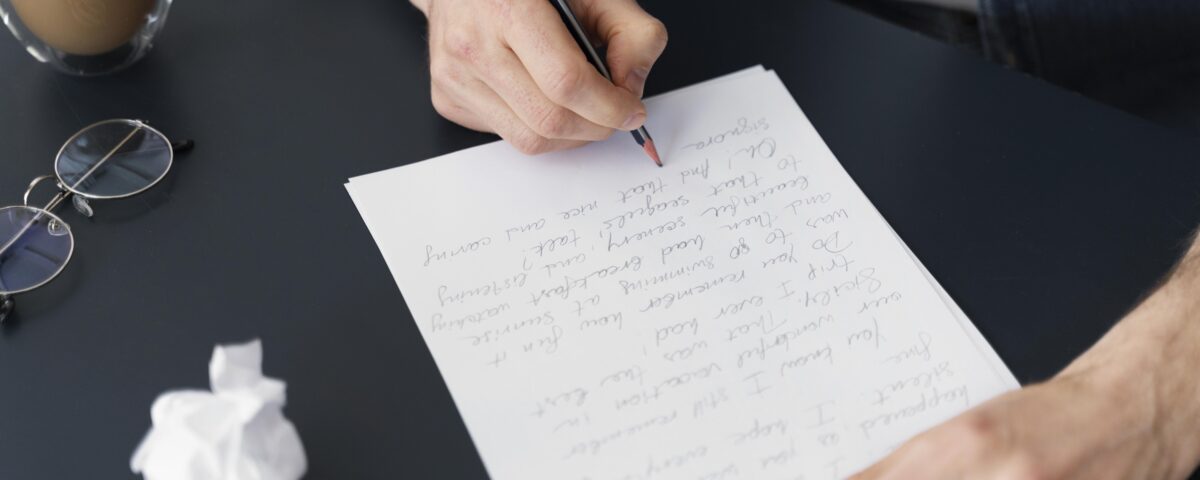 happened as you were
silent. I hope every
fine.
You know I still remember
our wonderful vacation in
Sicily. That was the best
trip I ever had!
Do you remember how fun it
was to go swimming at sunrise
and then had breakfast watching
beautiful scenery, and listening
to that seagulls talk?
Oh! And that nice and caring
signora